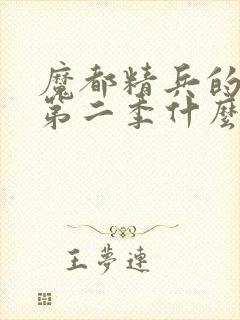 魔都精兵的
第二季什麼
王夢連